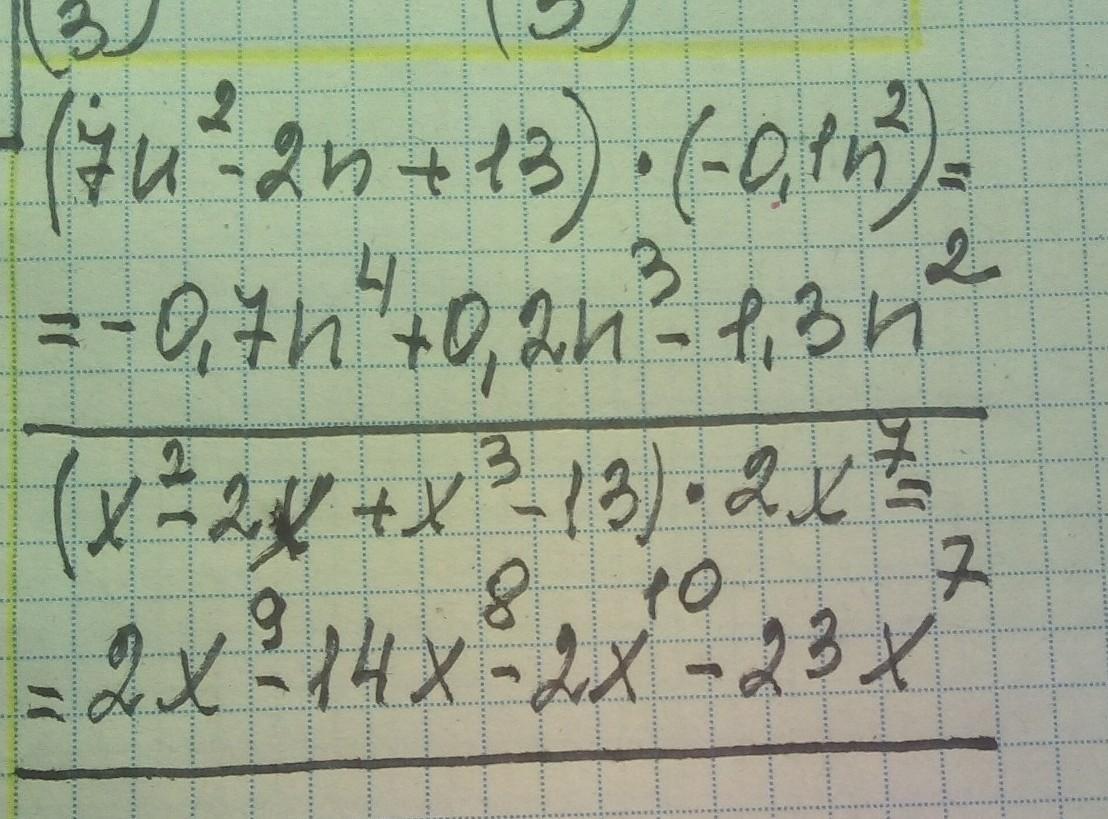 (3) (3)
(7n²-2n+13)·(-0,1n²)=
=-0,7n⁴+0,2n³-1,3n²
(x²-2x+x³-13)·2x⁷=
=2x⁹-14x⁸-2x¹⁰-23x⁷